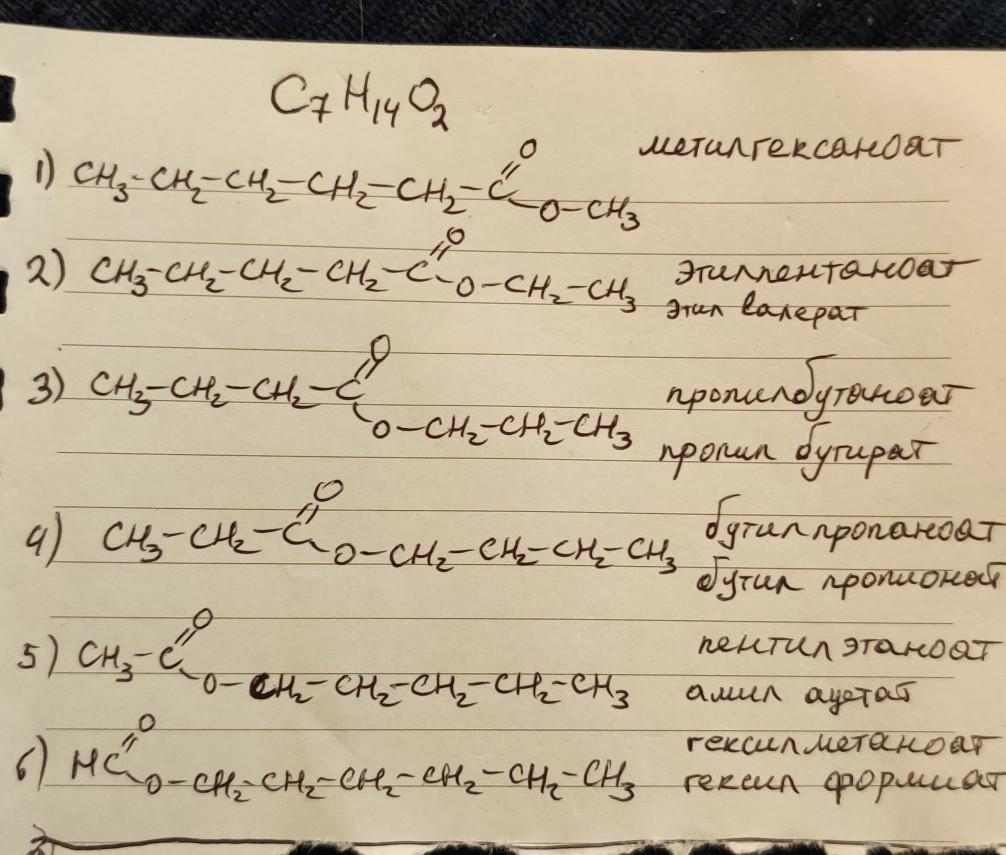 C7H14O2
метилгексаноат
1) CH3-CH2-CH2-CH2-CH2-C=O-O-CH3
2) CH3-CH2-CH2-CH2-C=O-O-CH2-CH3 этилпентаноат
этил валерат
3) CH3-CH2-CH2-C=O-O-CH2-CH2-CH3 пропилбутаноат
пропил бутират
4) CH3-CH2-C=O-O-CH2-CH2-CH2-CH3 бутилпропаноат
бутил пропионат
5) CH3-C=O-O-CH2-CH2-CH2-CH2-CH3 пентил этаноат
амил ацетат
6) HC=O-O-CH2-CH2-CH2-CH2-CH2-CH3 гексилметаноат
гексил формиат